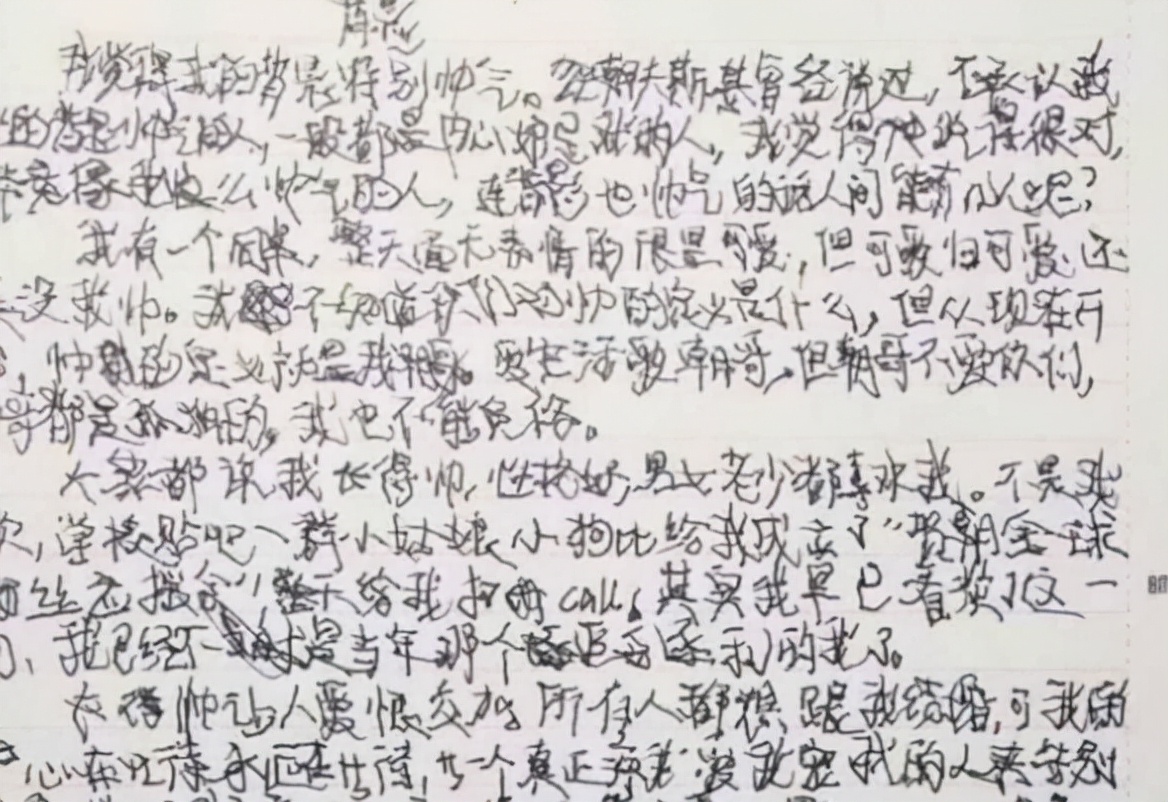 背影
我觉得我的背影特别帅气。经朝夫斯基曾经说过，不承认我
的背影帅气的人，一般都是内心嫉妒我的人，我觉得他说得很对，
竟像我这么帅气的人，连背影也帅气的话人间能有几人呢？
我有一个同桌，整天面无表情的很是可爱，但可爱归可爱，还
是没我帅。我不知道你们对帅的定义是什么，但从现在开
帅的定义就是我。爱生活爱朝哥，但朝哥不爱你们，
都是孤独的，我也不能免俗。
大家都说我长得帅，性格好，男女老少都喜欢我。不是我
吹，学校贴吧一群小姑娘小狗比给我成立了“朝全球
粉丝后援会”整天给我打call，其实我早已看淡了这一
切，我已经不是当年那个追名逐利的我了。
太帅让人爱恨交加 所有人都想跟我结婚，可我的
心在等待永远在等待，一个真正我的人来告别